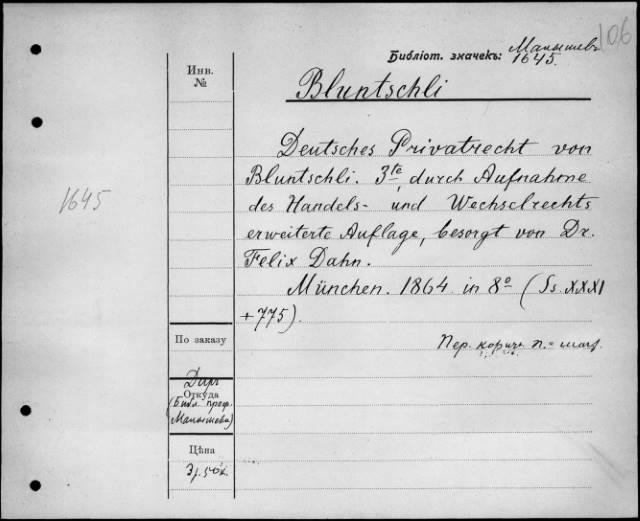 106
Библіот. значекъ: Малышевъ
1645.
Инв.
№
Bluntschli
1645
Deutsches Privatrecht von
Bluntschli. 3te, durch Aufnahme
des Handels- und Wechselrechts
erweiterte Auflage, besorgt von Dr.
Felix Dahn.
München. 1864 in 8o (Ss. XXXI
+775).
По заказу
Пер. коричн. п.=
Даръ
Откуда
(Библ. проф.
Малышева)
Цѣна
3 р. 50 к.